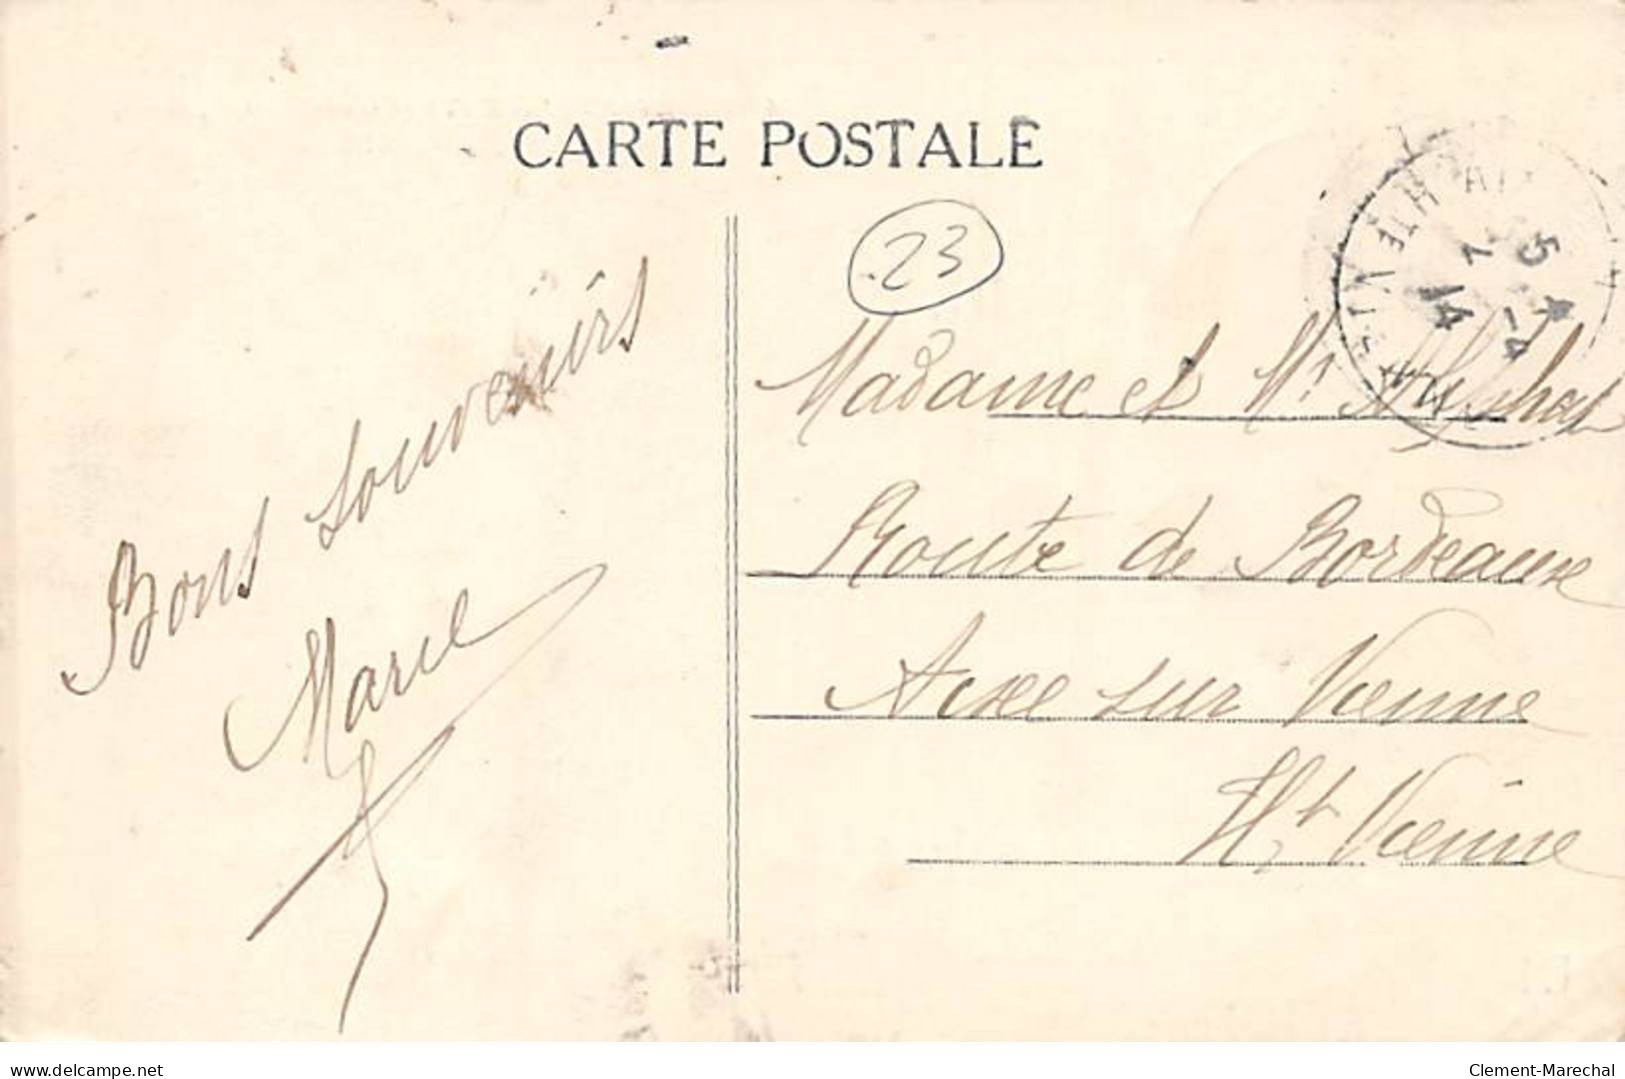 CARTE POSTALE
23
Bons souvenirs
Marie
Madame et Mr
Route de Bordeaux
Aixe sur Vienne
Hte Vienne
HTE VI
5 - 4
1 14
www.delcampe.net
Clement-Marechal